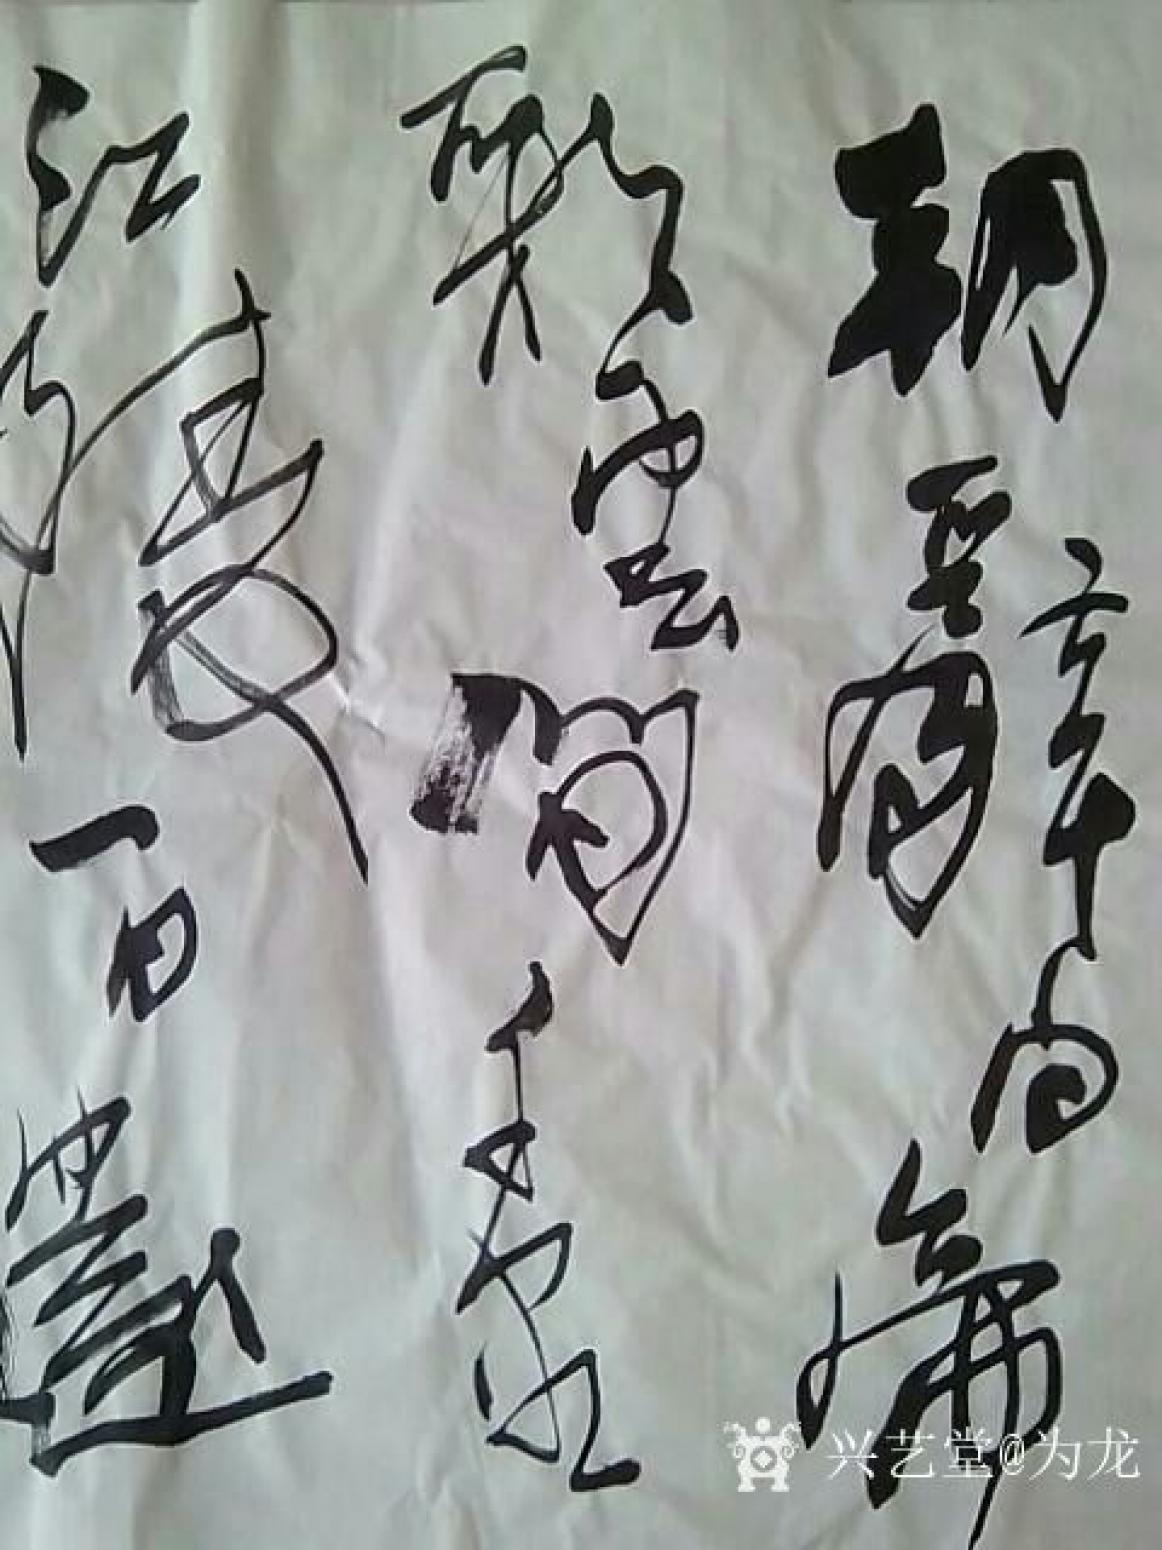 朝辞白帝
彩云间千里
江陵一日还
兴艺堂@为龙